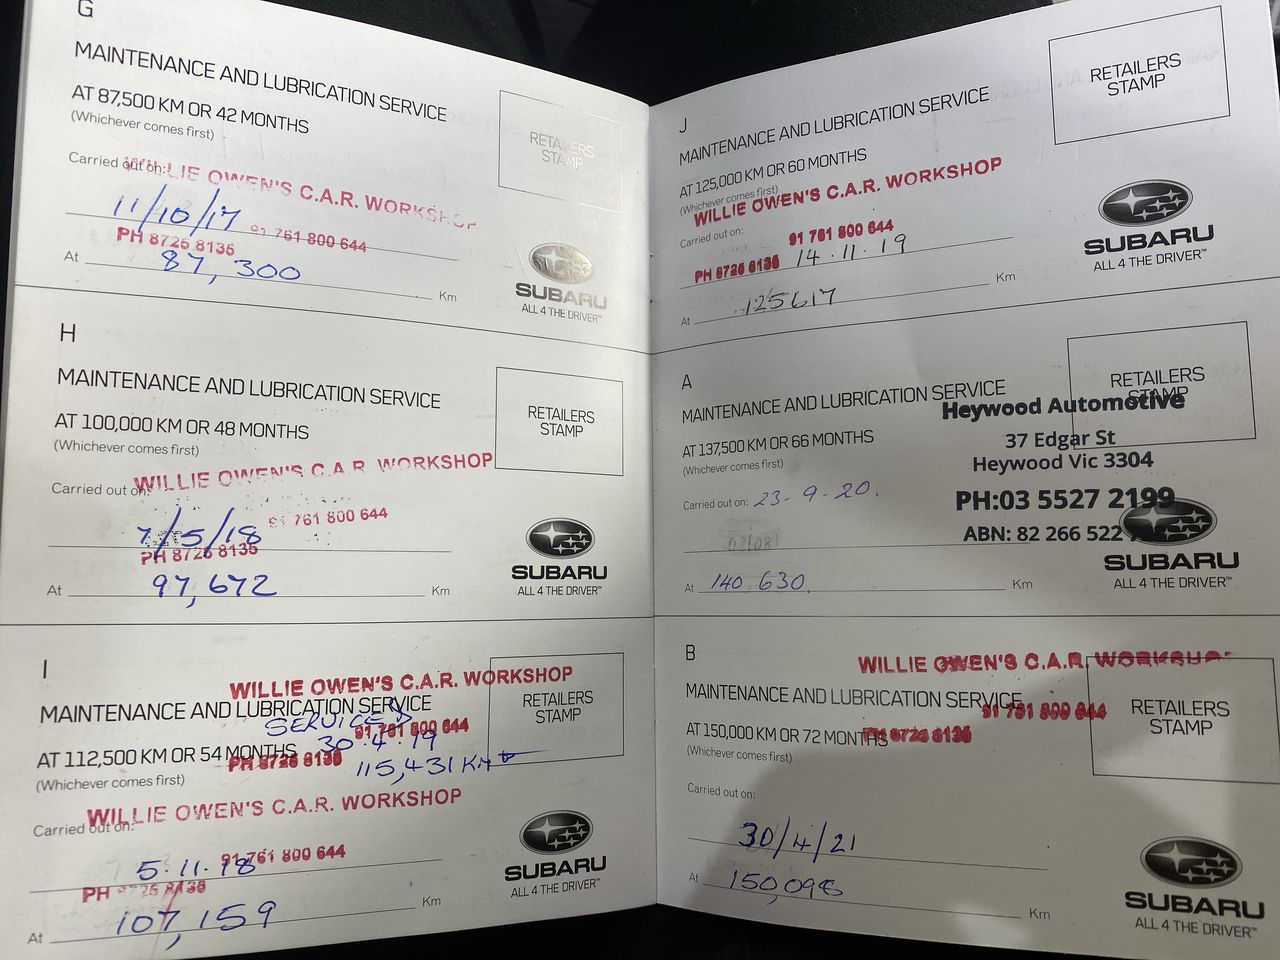 G
MAINTENANCE AND LUBRICATION SERVICE
AT 87,500 KM OR 42 MONTHS
(Whichever comes first)
RETAILERS
STAMP
Carried out on:
WILLIE OWEN'S C.A.R. WORKSHOP
11/10/17
91 761 800 644
PH 8725 8135
At 87,300 Km
SUBARU
ALL 4 THE DRIVER™
H
MAINTENANCE AND LUBRICATION SERVICE
AT 100,000 KM OR 48 MONTHS
(Whichever comes first)
RETAILERS
STAMP
WILLIE OWEN'S C.A.R. WORKSHOP
Carried out on:
91 761 800 644
7/5/18
PH 8725 8135
At 97,672 Km
SUBARU
ALL 4 THE DRIVER™
I
WILLIE OWEN'S C.A.R. WORKSHOP
MAINTENANCE AND LUBRICATION SERVICE
RETAILERS
STAMP
SERVICED
91 761 800 644
30.4.19
AT 112,500 KM OR 54 MONTHS
PH 8725 8135
115,431 KM
(Whichever comes first)
WILLIE OWEN'S C.A.R. WORKSHOP
Carried out on:
91 761 800 644
5.11.18
PH 8725 8135
At 107,159 Km
SUBARU
ALL 4 THE DRIVER™
J
MAINTENANCE AND LUBRICATION SERVICE
AT 125,000 KM OR 60 MONTHS
(Whichever comes first)
RETAILERS
STAMP
WILLIE OWEN'S C.A.R. WORKSHOP
Carried out on:
91 761 800 644
PH 8725 8135
14.11.19
At 125617 Km
SUBARU
ALL 4 THE DRIVER™
A
MAINTENANCE AND LUBRICATION SERVICE
RETAILERS
STAMP
Heywood Automotive
AT 137,500 KM OR 66 MONTHS
37 Edgar St
(Whichever comes first)
Heywood Vic 3304
Carried out on: 23-9-20.
PH:03 5527 2199
ABN: 82 266 522
At 140 630. Km
SUBARU
ALL 4 THE DRIVER™
B
WILLIE OWEN'S C.A.R. WORKSHOP
MAINTENANCE AND LUBRICATION SERVICE
91 761 800 644
RETAILERS
STAMP
AT 150,000 KM OR 72 MONTHS
PH 8725 8135
(Whichever comes first)
Carried out on:
30/4/21
At 150,098 Km
SUBARU
ALL 4 THE DRIVER™